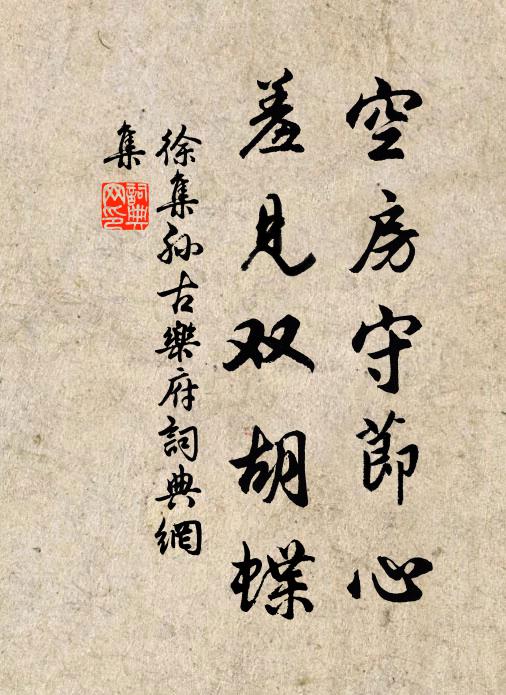 空房守節心
羞見双胡蝶
徐集孙古樂府詞典網
集
詞典
网印